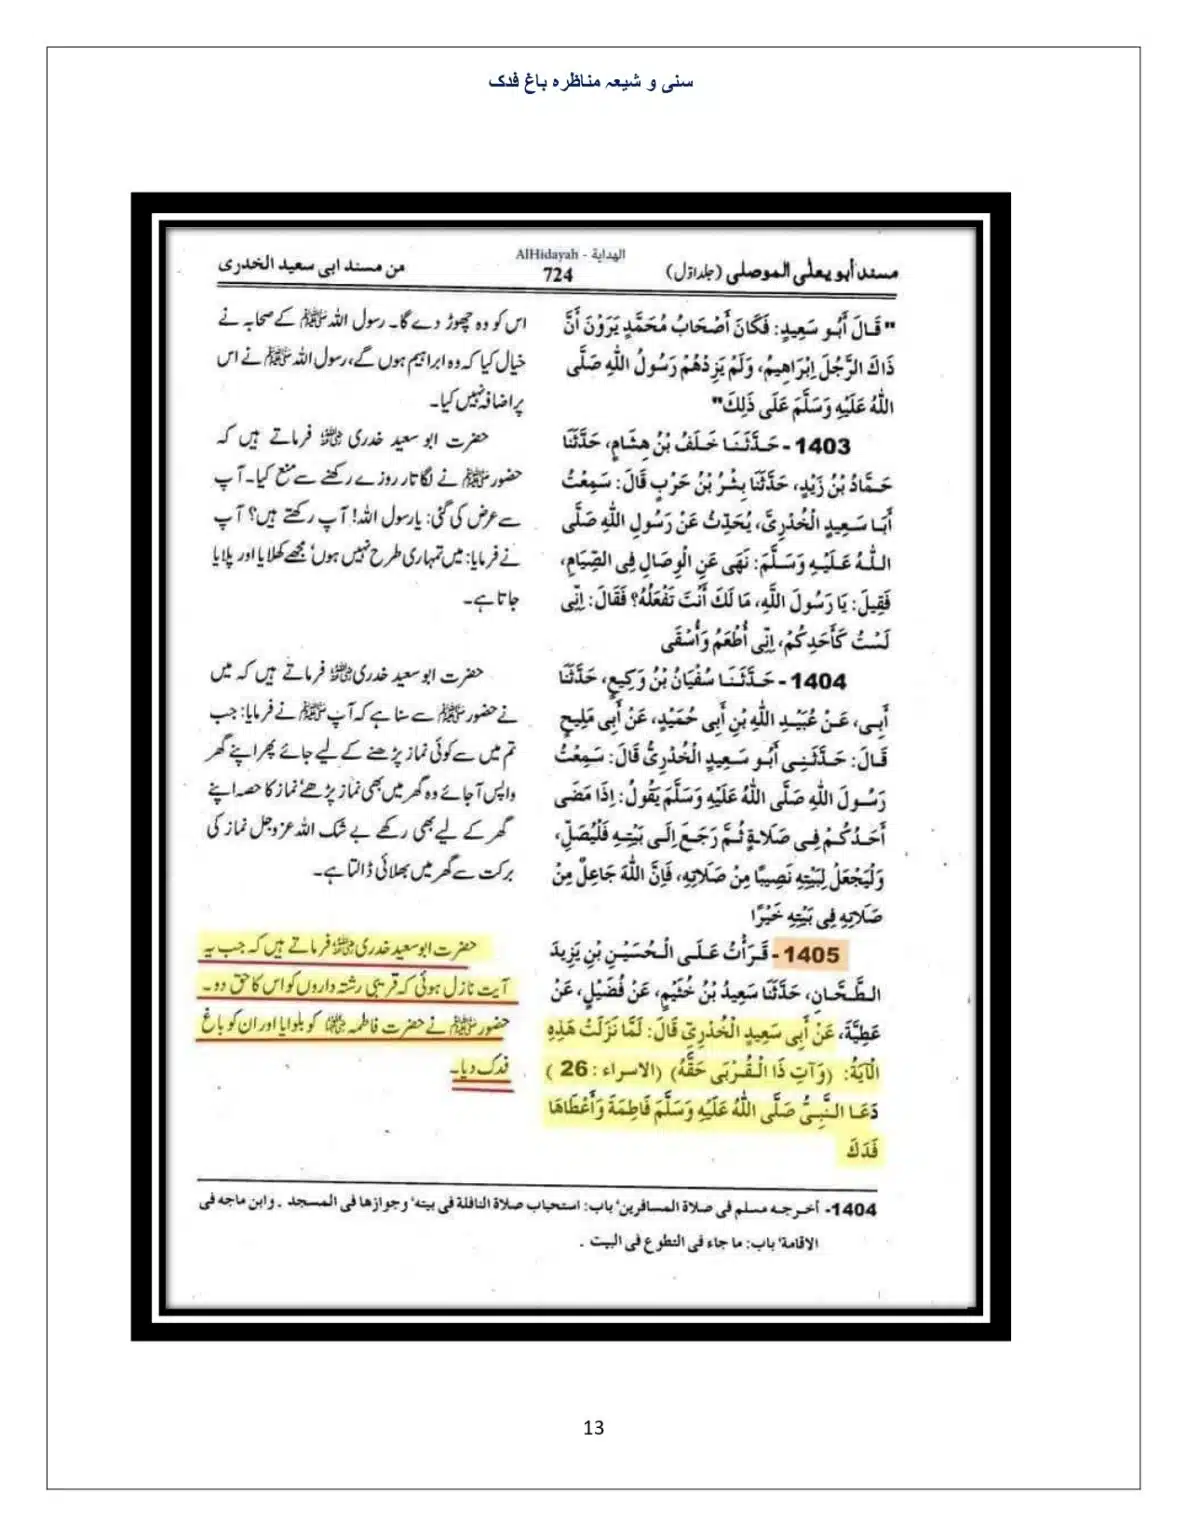 سنی و شیعہ مناظرہ باغ فدک
مسند أبو یعلی الموصلی (جلد اوّل)
AlHidayah - الهداية
724
من مسند ابی سعید الخدری
"قَالَ أَبُو سَعِيدٍ: فَكَانَ أَصْحَابُ مُحَمَّدٍ يَرَوْنَ أَنَّ
ذَاكَ الرَّجُلَ إِبْرَاهِيمُ، وَلَمْ يَزِدْهُمْ رَسُولُ اللَّهِ صَلَّى
اللَّهُ عَلَيْهِ وَسَلَّمَ عَلَى ذَلِكَ"
1403- حَدَّثَنَا خَلَفُ بْنُ هِشَامٍ، حَدَّثَنَا
حَمَّادُ بْنُ زَيْدٍ، حَدَّثَنَا بِشْرُ بْنُ حَرْبٍ قَالَ: سَمِعْتُ
أَبَا سَعِيدٍ الْخُدْرِيَّ، يُحَدِّثُ عَنْ رَسُولِ اللَّهِ صَلَّى
اللَّهُ عَلَيْهِ وَسَلَّمَ: نَهَى عَنِ الْوِصَالِ فِي الصِّيَامِ،
فَقِيلَ: يَا رَسُولَ اللَّهِ، مَا لَكَ أَنْتَ تَفْعَلُهُ؟ فَقَالَ: إِنِّي
لَسْتُ كَأَحَدِكُمْ، إِنِّي أُطْعَمُ وَأُسْقَى
1404- حَدَّثَنَا سُفْيَانُ بْنُ وَكِيعٍ، حَدَّثَنَا
أَبِي، عَنْ عُبَيْدِ اللَّهِ بْنِ أَبِي حُمَيْدٍ، عَنْ أَبِي مَلِيحٍ
قَالَ: حَدَّثَنِي أَبُو سَعِيدٍ الْخُدْرِيُّ قَالَ: سَمِعْتُ
رَسُولَ اللَّهِ صَلَّى اللَّهُ عَلَيْهِ وَسَلَّمَ يَقُولُ: إِذَا مَضَى
أَحَدُكُمْ فِي صَلَاةٍ ثُمَّ رَجَعَ إِلَى بَيْتِهِ فَلْيُصَلِّ،
وَلْيَجْعَلْ لِبَيْتِهِ نَصِيبًا مِنْ صَلَاتِهِ، فَإِنَّ اللَّهَ جَاعِلٌ مِنْ
صَلَاتِهِ فِي بَيْتِهِ خَيْرًا
1405- قَرَأْتُ عَلَى الْحُسَيْنِ بْنِ يَزِيدَ
الطَّحَّانِ، حَدَّثَنَا سَعِيدُ بْنُ خُثَيْمٍ، عَنْ فُضَيْلٍ، عَنْ
عَطِيَّةَ، عَنْ أَبِي سَعِيدٍ الْخُدْرِيِّ قَالَ: لَمَّا نَزَلَتْ هَذِهِ
الْآيَةُ: (وَآتِ ذَا الْقُرْبَى حَقَّهُ) (الاسراء: 26)
دَعَا النَّبِيُّ صَلَّى اللَّهُ عَلَيْهِ وَسَلَّمَ فَاطِمَةَ وَأَعْطَاهَا
فَدَكَ
اس کو وہ چھوڑ دے گا۔ رسول اللہ ﷺ کے صحابہ نے
خیال کیا کہ وہ ابراہیم ہوں گے، رسول اللہ ﷺ نے اس
پر اضافہ نہیں کیا۔
حضرت ابو سعید خدری رضی اللہ عنہ فرماتے ہیں کہ
حضور ﷺ نے لگاتار روزے رکھنے سے منع کیا۔ آپ
سے عرض کی گئی: یارسول اللہ! آپ رکھتے ہیں؟ آپ
نے فرمایا: میں تمہاری طرح نہیں ہوں، مجھے کھلایا اور پلایا
جاتا ہے۔
حضرت ابو سعید خدری رضی اللہ عنہ فرماتے ہیں کہ میں
نے حضور ﷺ سے سنا ہے کہ آپ ﷺ نے فرمایا: جب
تم میں سے کوئی نماز پڑھنے کے لیے جائے پھر اپنے گھر
واپس آجائے وہ گھر میں بھی نماز پڑھے، نماز کا حصہ اپنے
گھر کے لیے بھی رکھے بے شک اللہ عزوجل نماز کی
برکت سے گھر میں بھلائی ڈالتا ہے۔
حضرت ابو سعید خدری رضی اللہ عنہ فرماتے ہیں کہ جب یہ
آیت نازل ہوئی کہ قریبی رشتہ داروں کو اس کا حق دو۔
حضور ﷺ نے حضرت فاطمہ رضی اللہ عنہا کو بلوایا اور ان کو باغ
فدک دیا۔
1404- أخرجه مسلم فى صلاة المسافرين، باب: استحباب صلاة النافلة فى بيته، وجوازها فى المسجد . وابن ماجه فى
الاقامة، باب: ما جاء فى التطوع فى البيت .
13